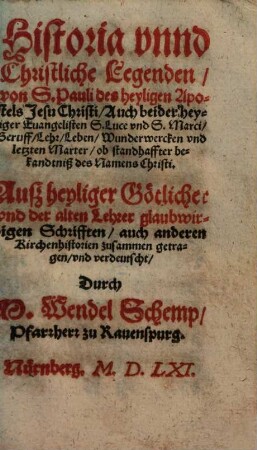 Historia vnnd
Christliche Legenden /
von S. Pauli des heyligen Apo-
stels Jesu Christi / Auch beider hey-
liger Euangelisten S. Luce vnd S. Marci /
Beruff / Lehr / Leben / Wunderwercken vnd
letzten Marter / ob standhaffter be-
kandtniß des Namens Christi.
Auß heyliger Götlicher
vnd der alten Lehrer glaubwir-
digen Schrifften / auch anderen
Kirchenhistorien zusammen getra-
gen / vnd verdeutscht /
Durch
M. Wendel Schemp /
Pfarrherr zu Rauenspurg.
Nürnberg. M. D. LXI.